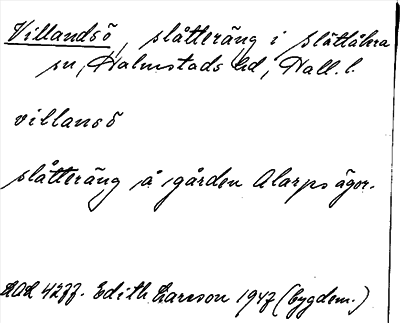 Villandsö, slåtteräng i Slättåkra
sn, Halmstads hd, Hall. l.
villansö
slåtteräng å gården Alarps ägor.
Edith Larsson 1947 (bygdem.)